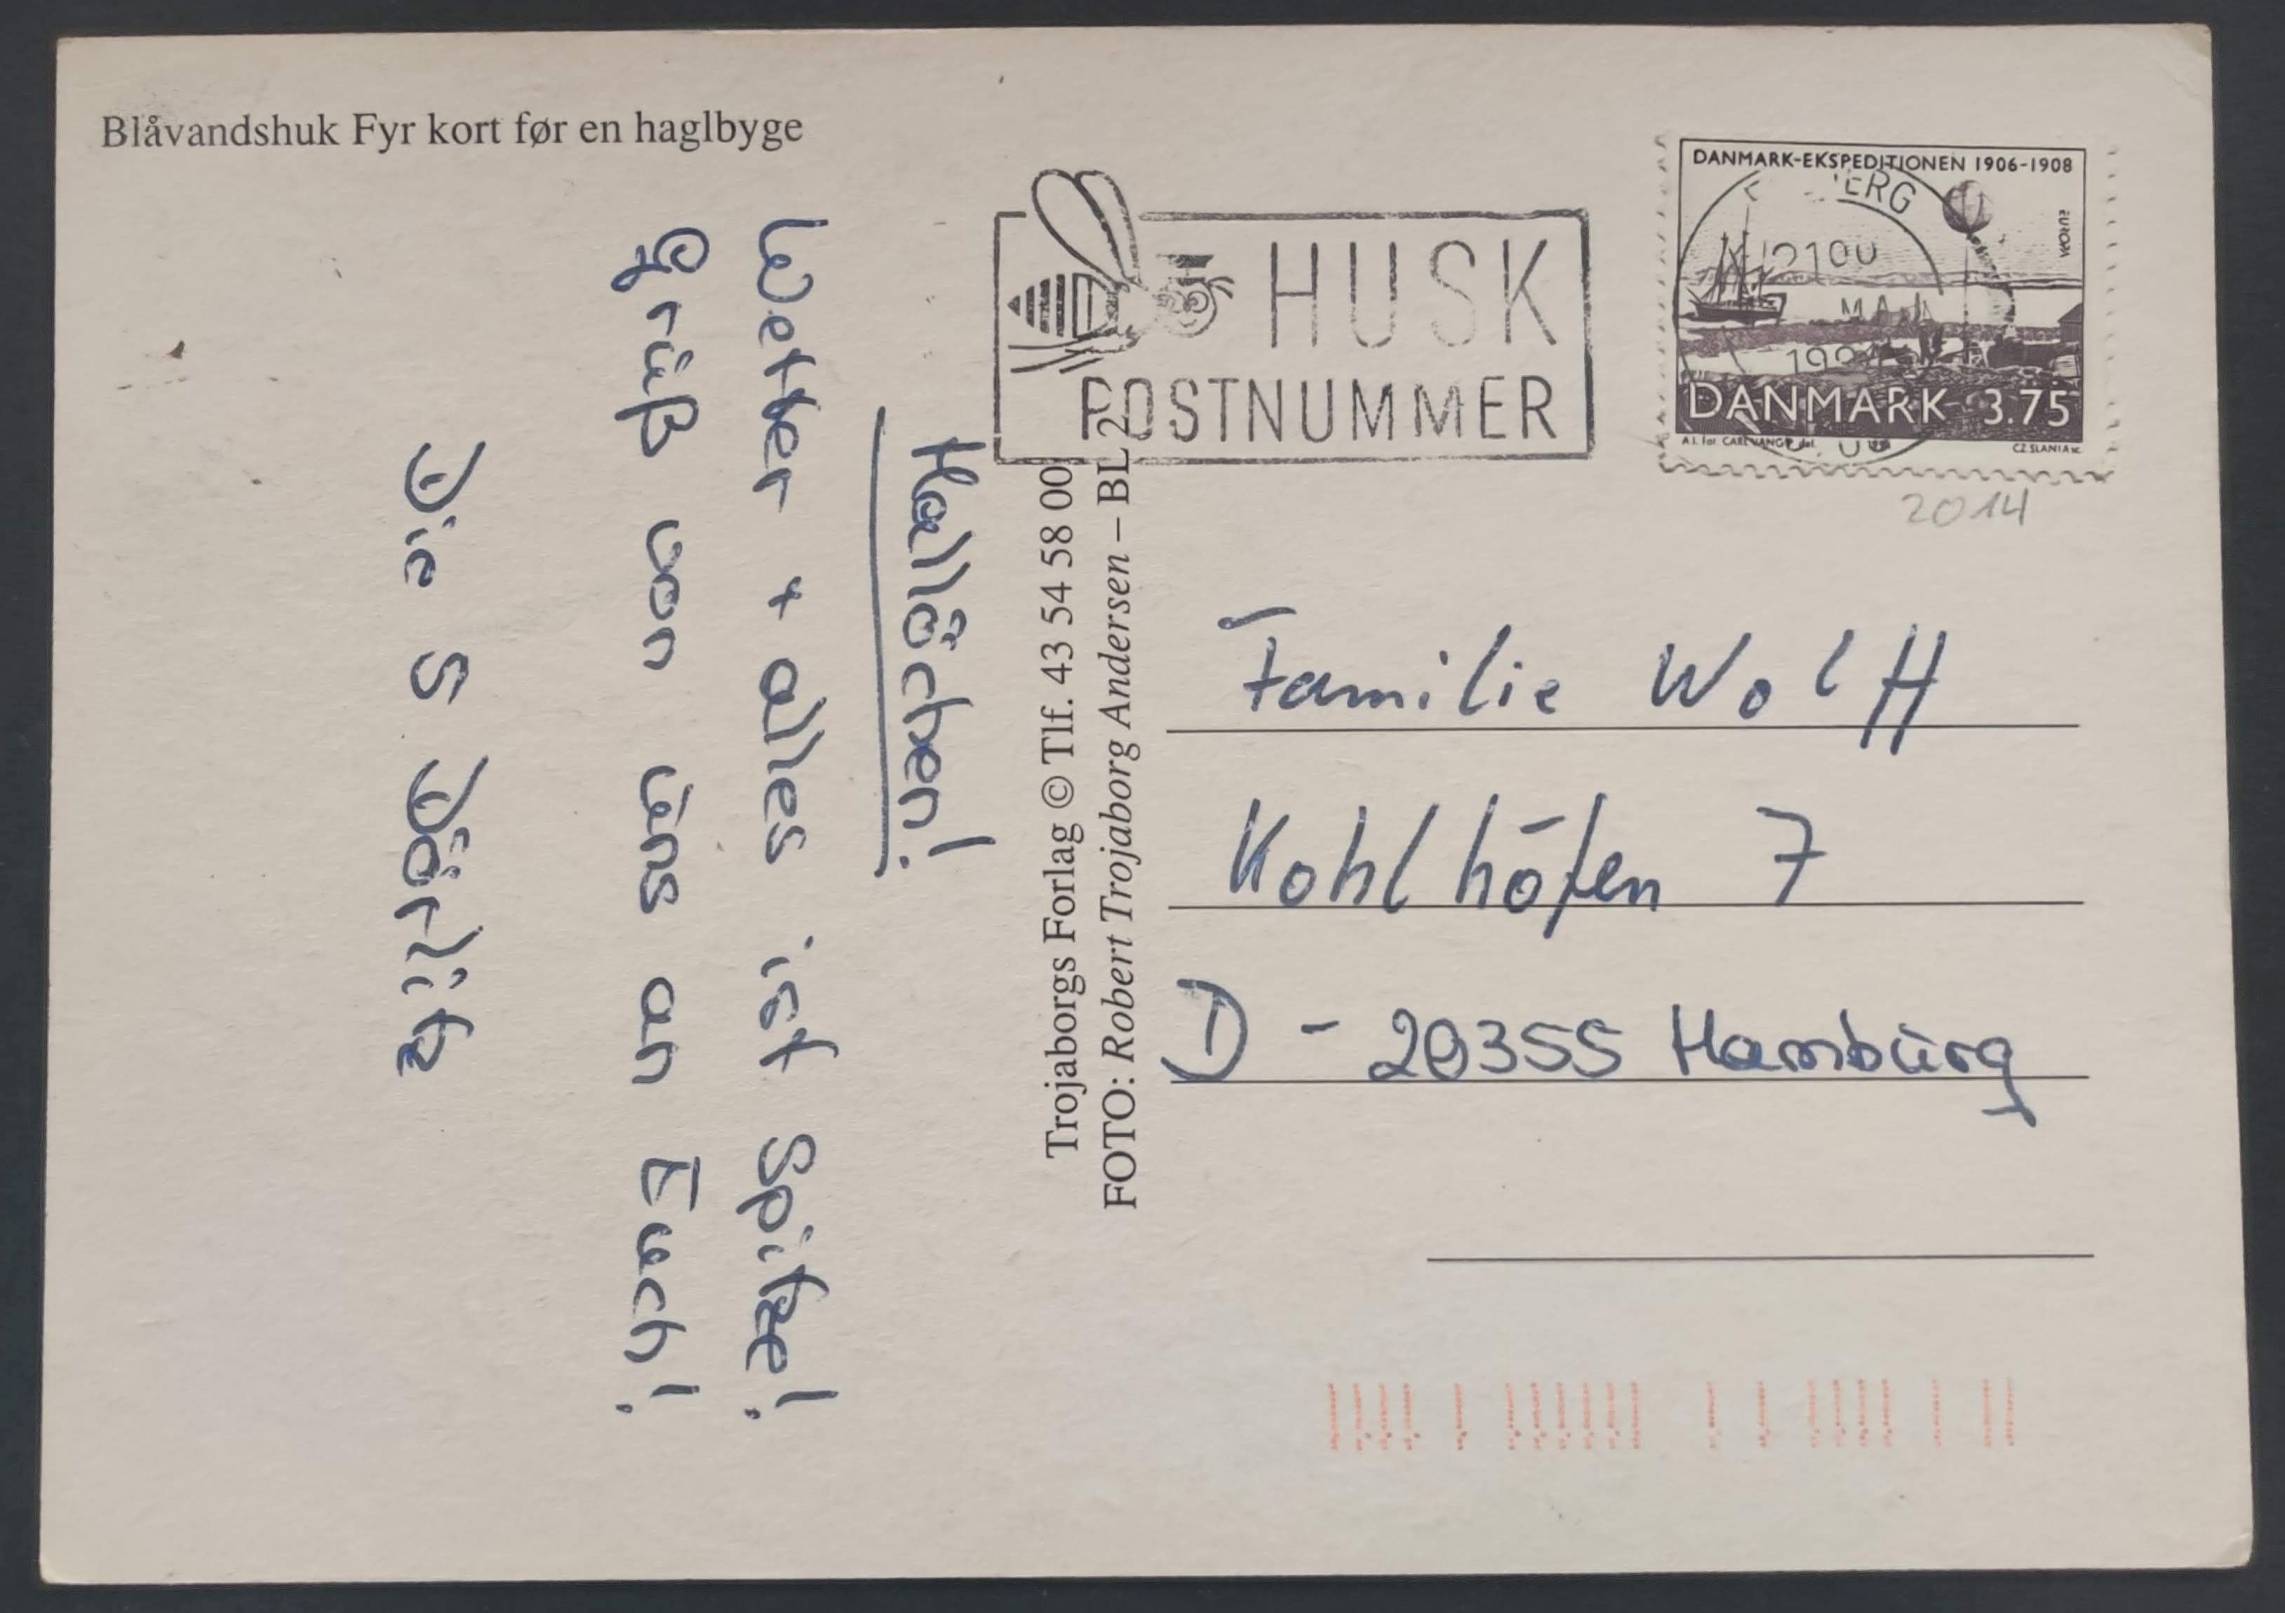 Blåvandshuk Fyr kort før en haglbyge
Hallöchen!
Wetter + alles ist Spitze!
Gruß von uns an Euch!
Die 5 Dörlitz
Trojaborgs Forlag © Tlf. 43 54 58 00
FOTO: Robert Trojaborg Andersen – BL 2
HUSK
POSTNUMMER
DANMARK-EKSPEDITIONEN 1906-1908
EUROPA
DANMARK 3.75
CZ.SLANIA sc.
2014
Familie Wolff
Kohlhöfen 7
D - 20355 Hamburg